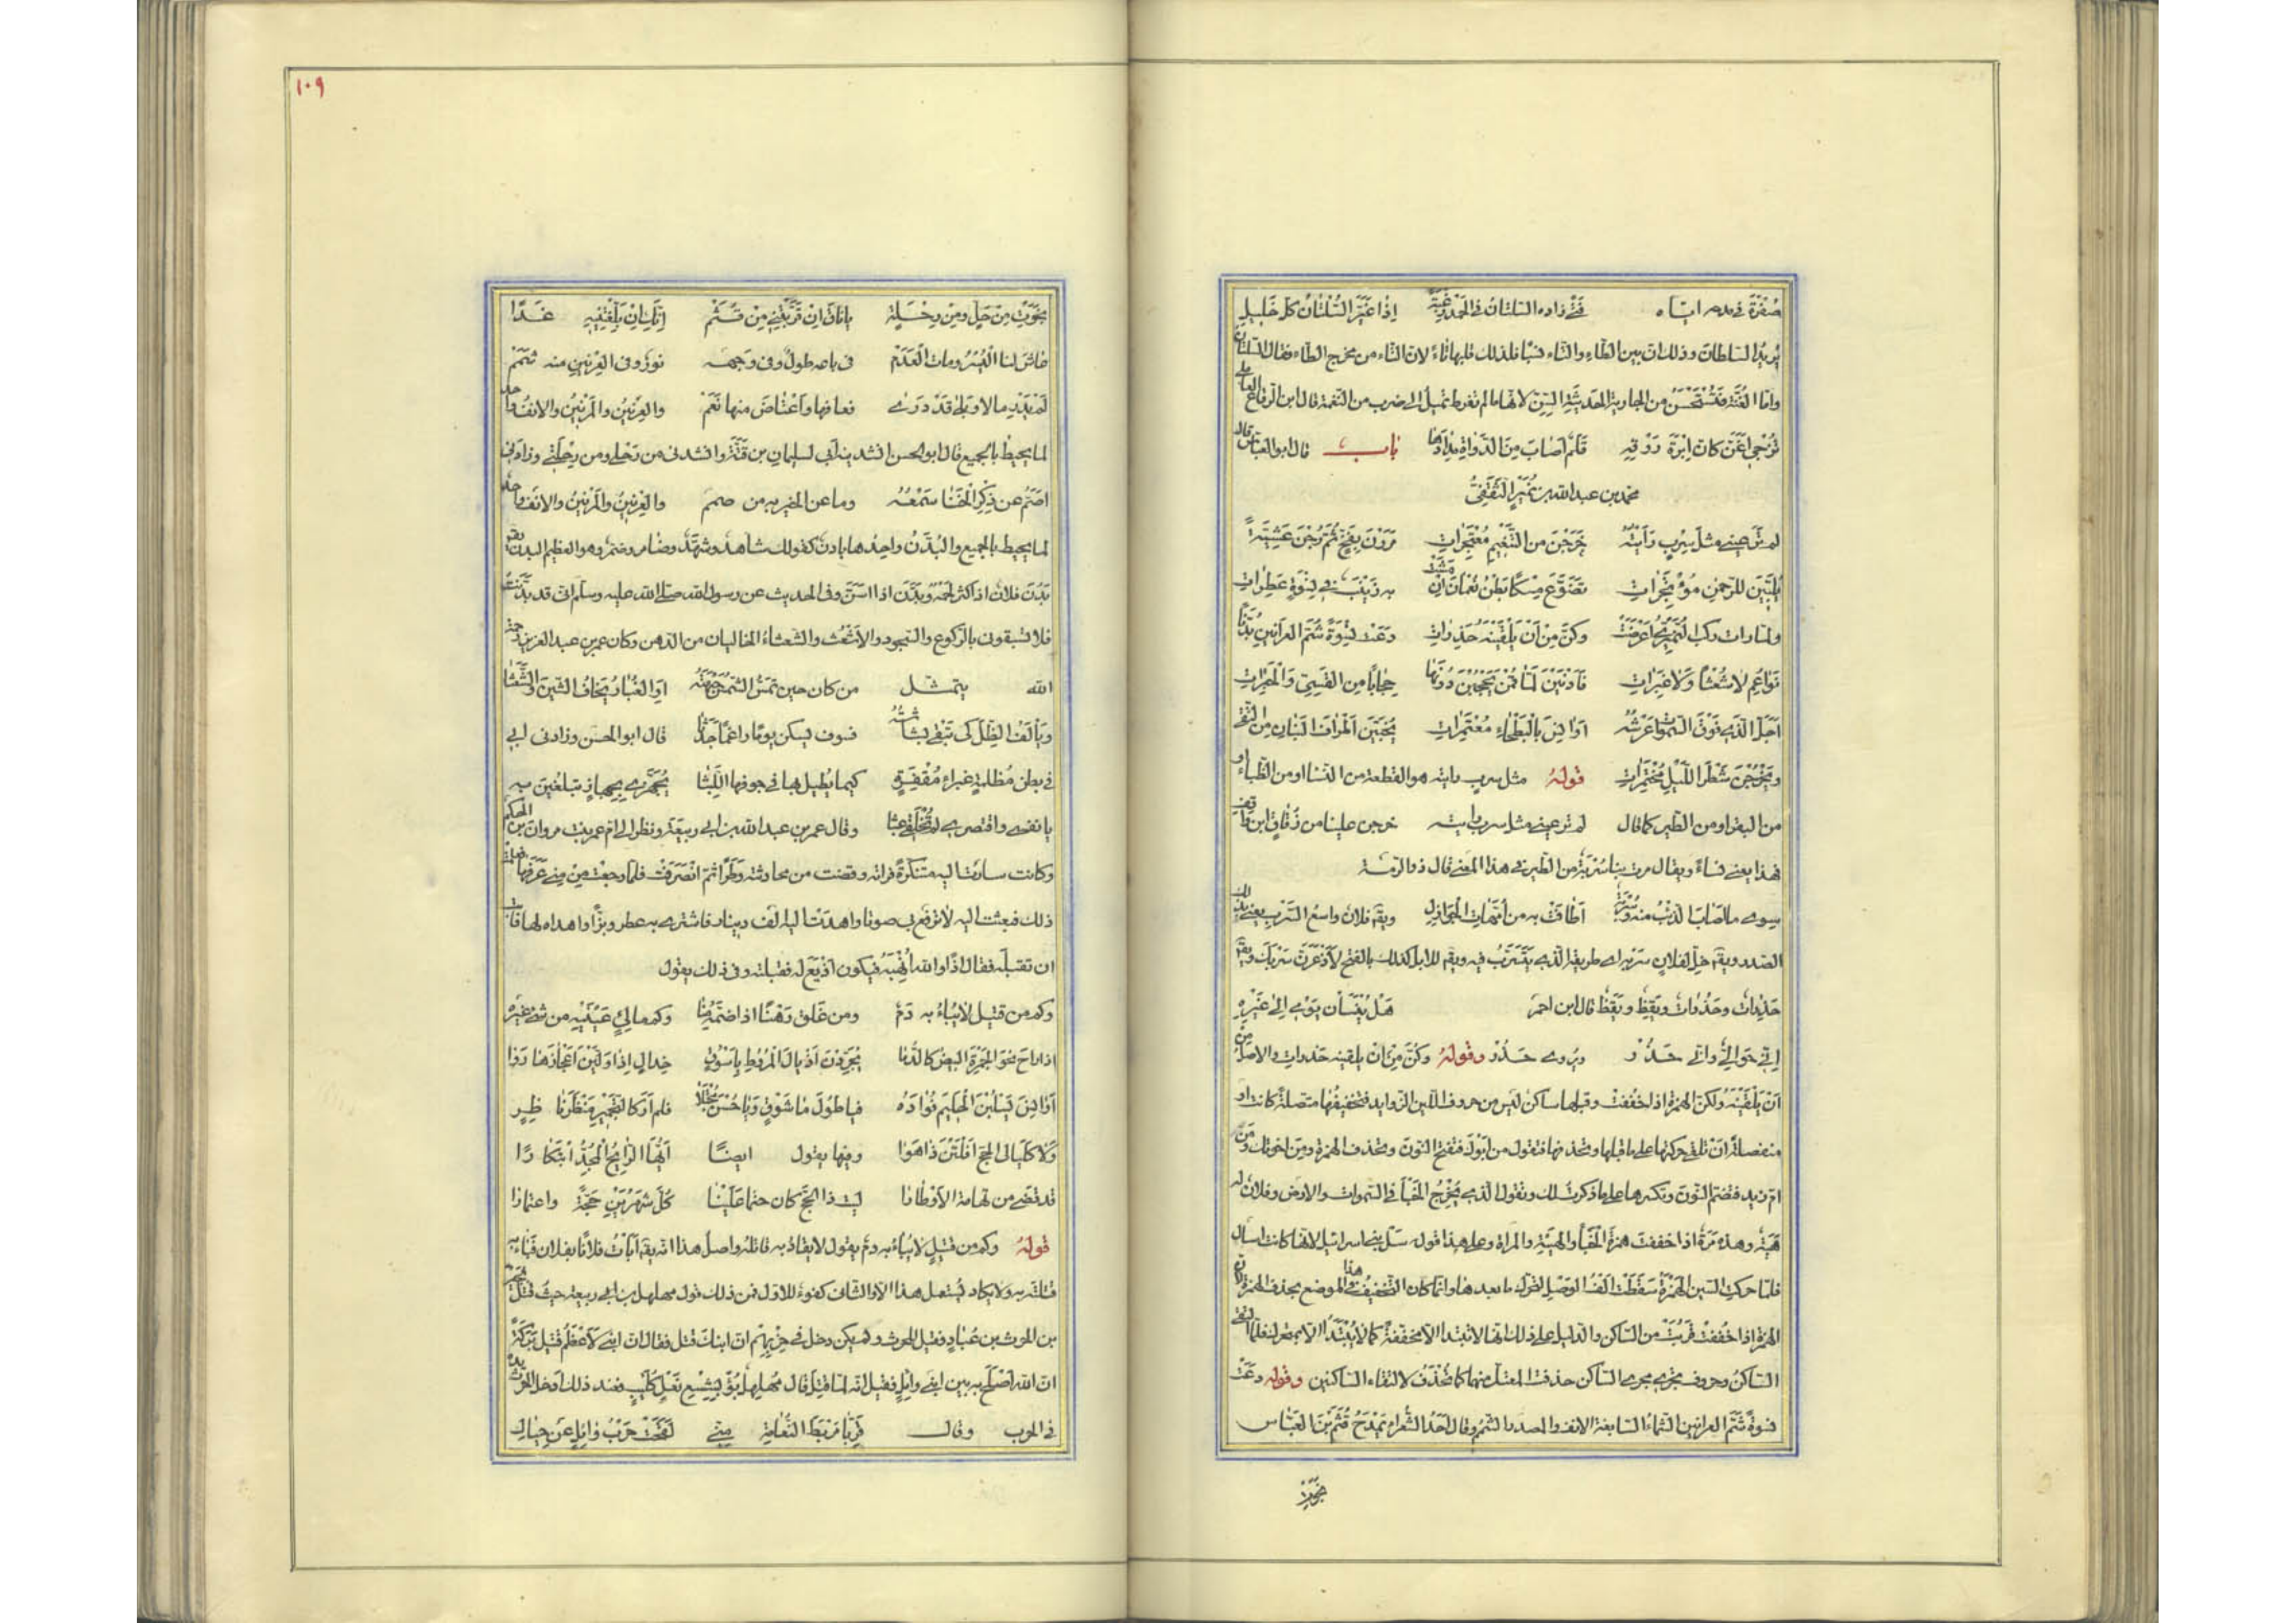 صُفْرَةَ في مدحه اياه فتًى زاده السلتان في الحمد رغبَةً اِذا غَيَّرَ السُّلْتانُ كلَّ خَليلِ
يُريدُ السلطان وذلك ان بين الطّاءِ والتاء نسبًا فلذلك قلبها تاءً لان التاء من مخرج الطّاء فقال السلتان
وامّا الغُنَّة فتُسْتَحْسَنُ من الجارية الحديثَةِ السِّنّ لانّها ما لم تفرط تميلُ الى ضرب من النغمة قال ابن الرقاع العاملي
تُزْجي اَغَنَّ كانَ اِبْرَةَ رَوْقِهِ قَلَمٌ اَصابَ مِنَ الدَّواةِ مِدادَها باب قال ابو العباس قال
محمد بن عبد الله بن نُمَيْرٍ الثَّقَفِيُّ
لم ترَ عيني مثلَ سِرْبٍ رَاَيْتُهُ خَرَجْنَ من التَّنْعيمِ مُعْتَجِراتِ مَرَرْنَ بِفَخٍّ ثُمَّ رُحْنَ عَشِيَّةً
يُلَبِّينَ للرّحمٰنِ مُؤْتَجِراتِ تَضَوَّعَ مِسْكًا بَطْنُ نَعْمانَ اِنْ مَشَتْ به زَيْنَبٌ في نِسْوَةٍ عَطِراتِ
ولمّا رات ركبَ النُّمَيْرِيِّ اَعْرَضَتْ وكنَّ مِنْ اَنْ يَلْقَيْنَهُ حَذِراتِ دَعَتْ نِسْوَةً شُمَّ العَرانينِ بُدَّنًا
نَواعِمَ لا شُعْثًا وَلا غَبِراتِ فَاَدْنَيْنَ لَمّا قُمْنَ يَحْجُبْنَ دُونَها حِجابًا مِنَ القَسِّيِّ وَالْحَبَراتِ
اَحَلَّ الَّذي فَوْقَ السَّمواتِ عَرْشُهُ اَوانِسَ بِالْبَطْحاءِ مُعْتَمِراتِ يُخَبِّينَ اَطْرافَ البَنانِ مِنَ التُّقى
ويَخْرُجْنَ شَطْرَ اللَّيْلِ مُخْتَمِراتِ قولهُ مثل سربٍ رايته هو القطعة من النسا او من الظباءِ او
من البقر او من الطير كما قال لم تر عيني مثل سرب رايته خرجن علينا من زُقاقِ ابن واقف
فهذا يعني نساءً ويقال مرت بنا سُرْبَةٌ من الطير في هذا المعنى قال ذو الرمّة
سوى ما اَصابَ الذئبُ منه وسُرْبَةٌ اَطافَتْ به من اُمَّهاتِ الجَوازِلِ ويقا فلانٌ واسعُ السَّرْبِ يعني بذلك
الصدر ويقا خلِّ لفلانٍ سَرْبَه اي طريقه الّذي يَتَسَرَّبُ فيه ويقا للابل كذلك بالفتح لاَذْعَرَنَّ سَرْبَكَ ويقا
حَذِراتٌ وحَذُراتٌ ويَقِظٌ ويَقُظٌ قال ابن احمر هَلْ يُنْسِأَنْ يَوْمي اِلى غَيْرِهِ
اِنّي حَوالِيٌّ وانّي حَذُرْ ويُروى حَذِرْ وقولهُ وكُنَّ مِنْ اَنْ يلقينه حذرات والاصلُ مِنْ
اَنْ يَلْقَيْنَهُ ولكنّ الهمزة اذا خُفِّفَتْ وقبلها ساكن لَيْسَ من حروف اللّين الزّوايد فتخفيفُها متصلةً كانت او
منفصلةً اَنْ تلقى حركتها على ما قبلها وتحذفها فتقول مَنَ بُوكَ فتفتح النّونَ وتحذف الهمزة ومِنِ اخوتك ومَنُ
امّ زيد فتضم النّونَ وتكسرها على ما ذكرت لك وتقول الّذي يُخْرِجُ الخَبَ في السّموات والارض وفلانٌ له
هَيَةٌ وهذه مَرَةٌ اذا خففت همزة الخَبْأِ والهَيْئَةِ والمراة وعلى هذا قوله سَلْ بني اسرائيل لانّها كانت اسأل
فلمّا حركت السّين الهمزةُ سقطتْ الفُ الوَصْلِ لتحرّك ما بعدها وانّما كان التخفيفُ في هذا الموضع بحذف الهمزة لانّ
الهمزة اذا خُفِّفَتْ قَرُبَتْ من السّاكن والدّليل على ذلك انّها لا تبتدا الّا محققةً كما لا يُبْتَدَأ الّا بمتحرك فلمّا التقى
السّاكنُ وحروف تجري مجرى السّاكن حذفت المعتلّ منهما كما تُحْذَفُ لالتقاء السّاكنين وقوله دعَتْ
نسوةً شُمَّ العرانين الشّمّاءُ السّابغة الانف والمصدر الشّممُ وقال اَحَدُ الشُّعَراءِ يَمْدَحُ قُثَمَ بْنَ العَبّاس
نجوتِ
١٠٩
نَجَوْتِ مِن حَلٍّ ومِنْ رِحْلَةٍ يا ناقَ اِنْ قَرَّبْتِني مِنْ قُثَمْ اِنَّكِ اِنْ بَلَّغْتِنيهِ غَدًا
عاشَ لنا اليُسْرُ ومات العَدَمْ في باعه طولٌ وفي وَجهه نورٌ وفي العِرْنينِ منه شَمَمْ
لَمْ يَدْرِ ما لا وبَلى قَدْ دَرى فعافها واعْتاضَ منها نَعَمْ والعِرْنينُ والمَرْسِنُ والانفُ واحد
لما يحيط بالجميع قال ابو الحسن انشدنيه ابي لسليمان بن قَتَّةَ وانشدني من رَحْلي ومن رِحْلَتي وزادني
اَصَمُّ عن ذِكْرِ الخَنا سَمْعُهُ وما عن الخير به من صمَم والعِرْنينُ والمَرْسِنُ والانفُ واحدٌ
لما يحيط بالجميع والبُدَّنُ واحِدُها بادِنٌ كقولك شاهدٌ وشُهَّدٌ وضامر وضمّر وهو العظيم البدن يقا
بَدُنَ فلانٌ اذا كثر لحمُه وبَدَّنَ اذا اسَنَّ وفي الحديث عن رسول الله صلى الله عليه وسلم انّي قد بَدَّنْتُ
فلا تسبقوني بالرّكوع والسّجود والاَشْعَثُ والشّعثاءُ الخاليان من الدهن وكان عمر بن عبد العزيز رحمه
الله يتمثّل من كان حين تمسُّ الشّمسُ جَبْهَتَهُ اَوِ الغُبارُ يَخافُ الشَّيْنَ والشَّعَثا
ويَأْلَفُ الظِّلَّ كي تَبْقى بَشاشَتُهُ فسوف يسكن يومًا راغمًا جَدَثا قال ابو الحسن وزادني ابي
في بطن مُظلمةٍ غبراءَ مُقْفِرَةٍ كيما يُطيل بها في جوفها اللَّبَثا تَجَهَّزي بِجِهازٍ تبلغينَ به
يا نفسُ واقتصري لم تُخْلَقي عبَثا وقال عمر بن عبد الله بن ابي ربيعة ونظر الى ام عمر بنت مروان بن الحكم
وكانت سارت اليه متنكّرةً فراته وقضت من محادثته وطَرًا ثمّ انْصَرَفَتْ فلمّا رجعَتْ مِنْ مِنًى عَرَفَها فعلمتْ
ذلك فبعثت اليه لا ترفع بي صوتا واهدَتْ اليه الف دينار فاشترى به عطرًا وبَزًّا واهداه لها فابت
ان تقبله فقال اذًا والله اُنْهِبَهُ فيكون اذْيَعَ له فقبلته وفي ذلك يقول
وكم من قتيلٍ لا يُباءُ به دَمٌ ومن غَلِقٍ رَهْنًا اذا ضمّه مِنًى وكم مالِئٍ عَيْنَيْهِ من شَيْءِ غَيْرِه
اذا راحَ نحوَ الجَمْرَةِ البيضُ كالدُّمى يُجَرِّرْنَ اَذْيالَ المُروطِ بِاَسْوُقٍ خِدالٍ اِذا وَلَّيْنَ اَعْجازُها رِوا
اَوانِسُ يَسْلُبْنَ الحليمَ فُؤادَهُ فيا طُولَ ما شَوْقٍ وَيا حُسْنَ مُجْتَلى فلم اَرَ كالتَّجْميرِ مَنْظَرَ ناظِرٍ
وَلا كليالي الحجّ اَفْلَتْنَ ذا هَوى وفيها يقول ايضًا اَيُّها الرّائِحُ الْمُجِدُّ ابْتِكارًا
قد قضى من تهامة الاَوْطارا ليت ذا الحجَّ كان حتما عَلَيْنا كُلَّ شَهْرَيْنِ حَجَّةً واعتمارا
قولهُ وكم من قتيلٍ لا يُباءُ به دمٌ يقول لا يقادُ به قاتلُهُ واصلُ هذا انّه يقا اَباْتُ فلانًا بفلان فباءَ به
قتلته به ولا يكاد يُستعمل هذا الا والثاني كفوءٌ للاوّل فمن ذلك قول مهلهل بن ابي ربيعة حيثُ قتل بُجَيْرَ
بن الحرث بن عُبادٍ فقيل للحرث ولم يكن دخل في حَرْبِهِمْ انّ ابنكَ قتل فقال انّ ابني لاَعْظَمُ قتيل بَرَكَةً
ان الله اَصْلَحَ به بين ابنَي وائِلٍ فقيل انّه لمّا قتِلَ قال مُهلهلٌ بُؤْ بِشِسْعِ نَعْلِ كُلَيْبٍ فعند ذلك اَدخل الحرث يده
في الحرب وقال قَرِّبا مَرْبَطَ النَّعامَةِ مِنّي لَقِحَتْ حَرْبُ وائِلٍ عَنْ حِيالِ